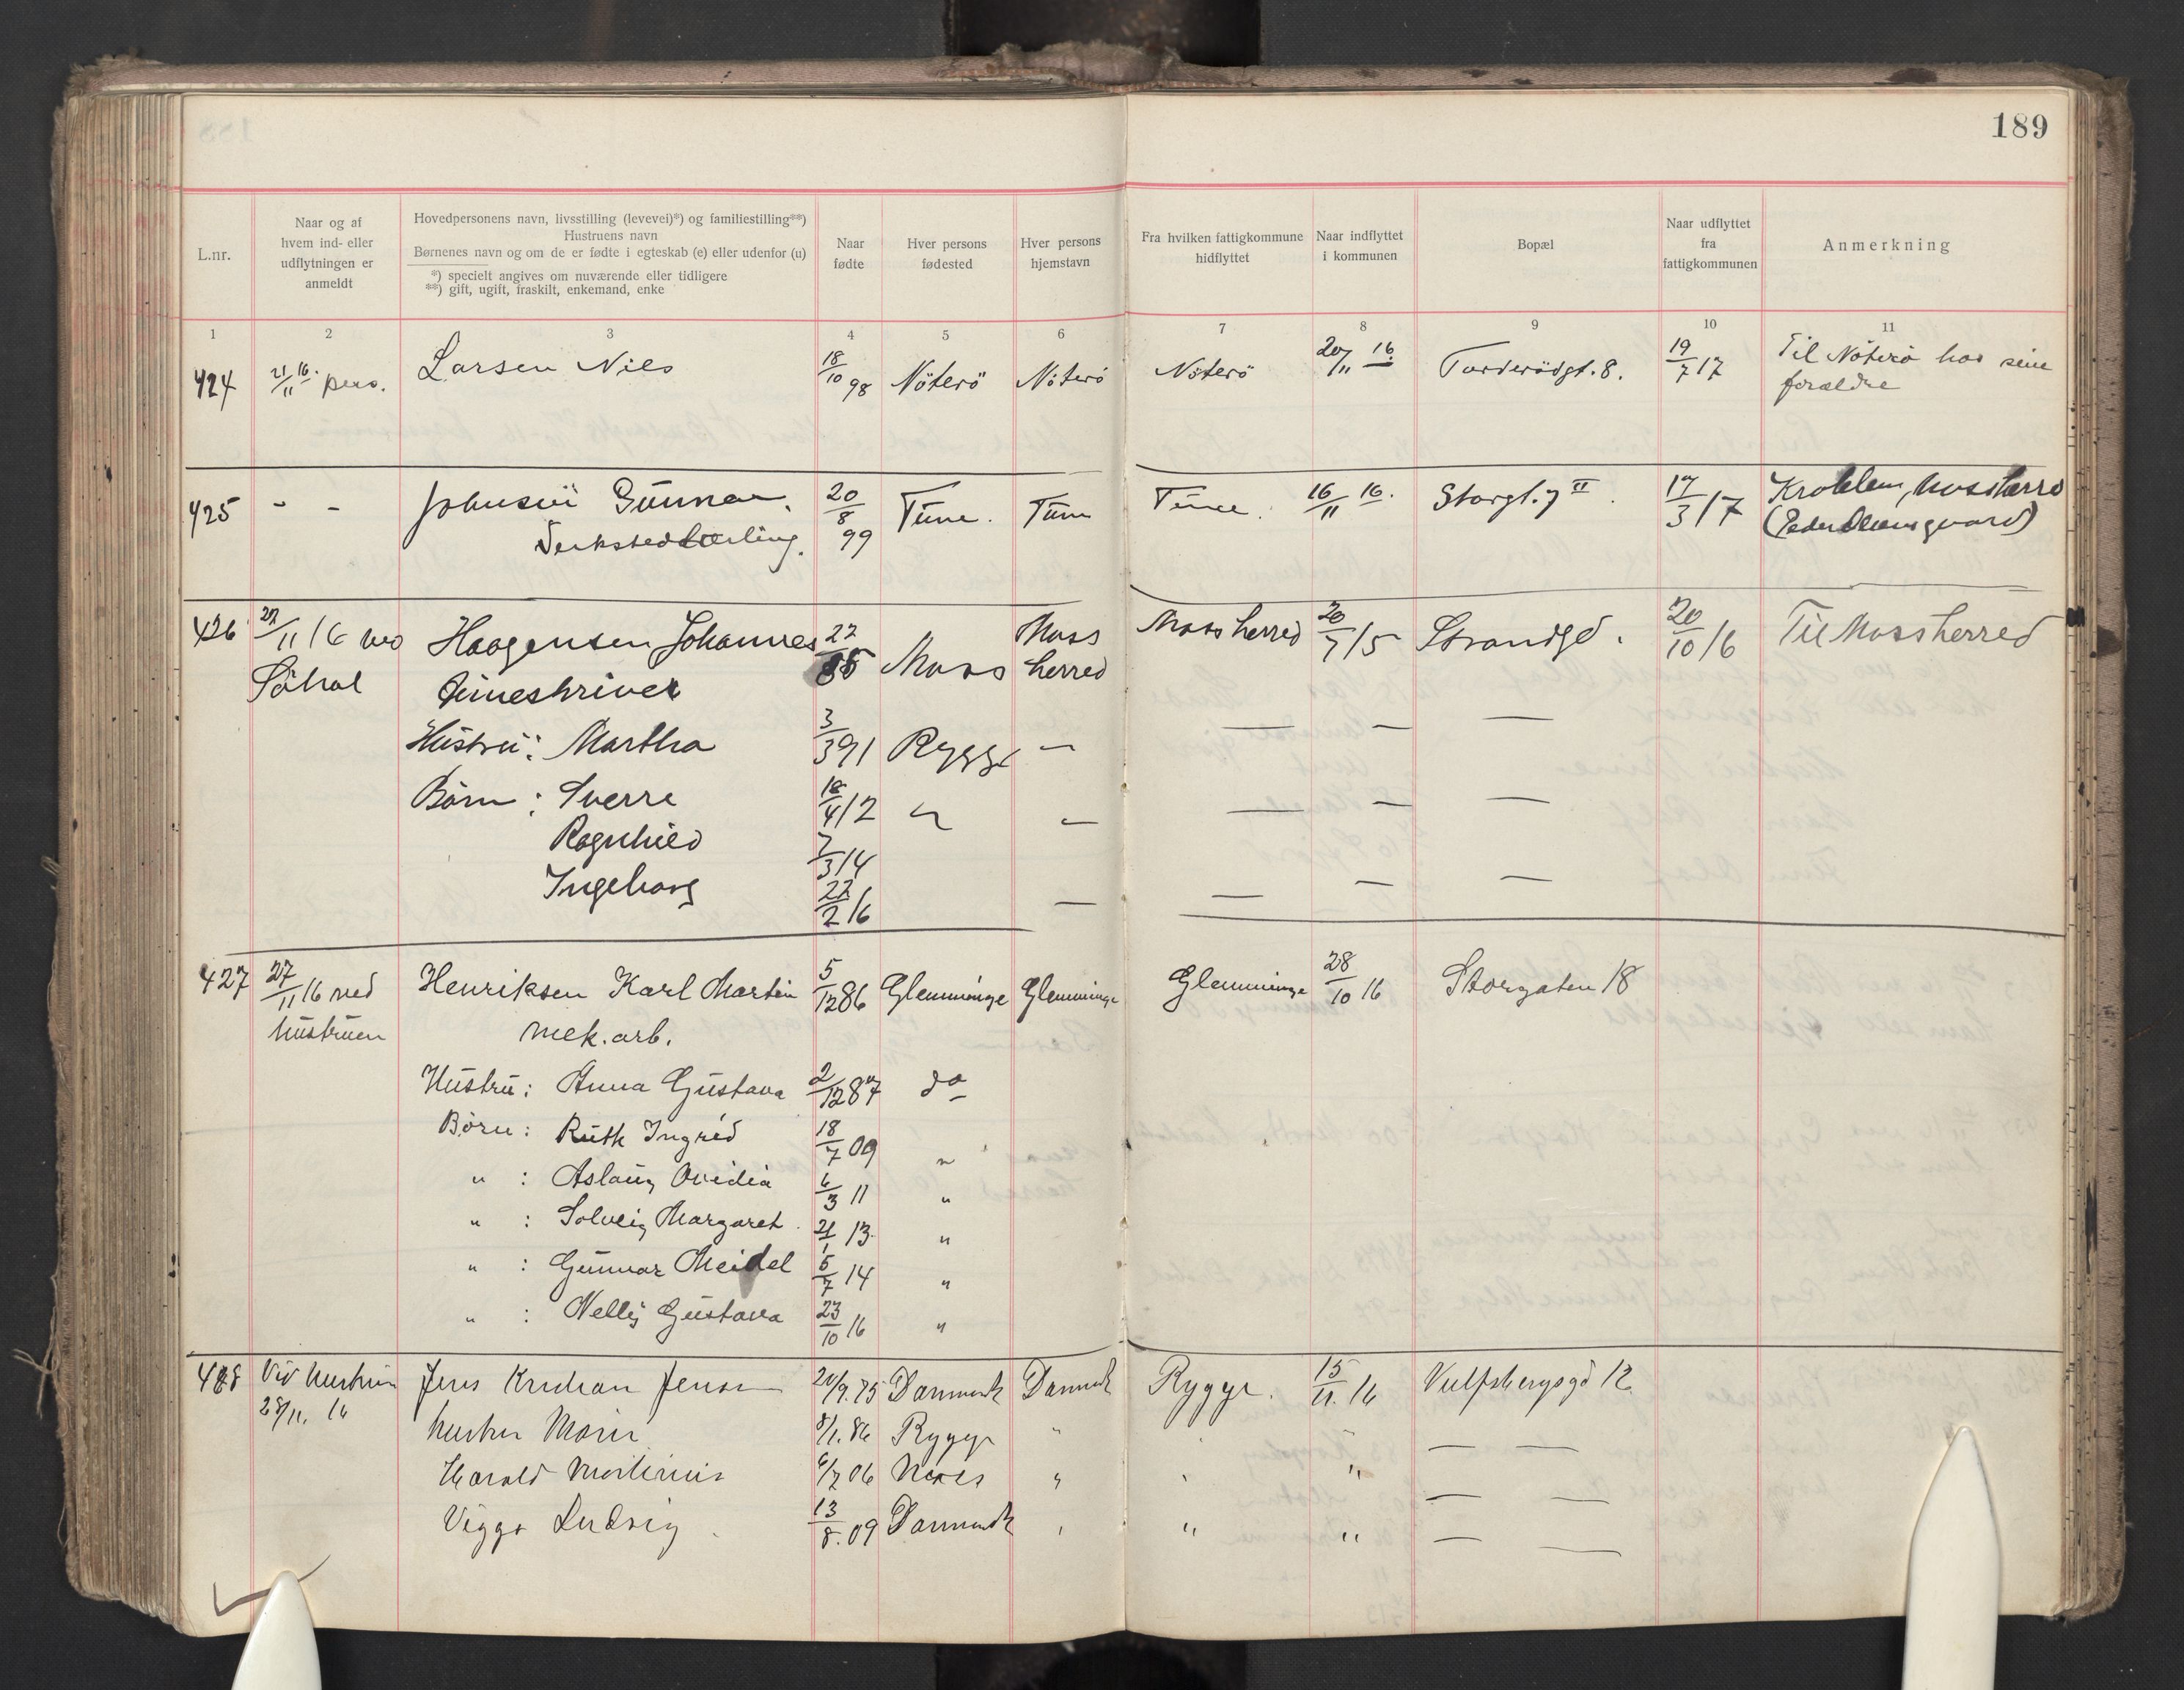 189
L.nr.
Naar og af
hvem ind- eller
udflytningen er
anmeldt
Hovedpersonens navn, livsstilling (levevei)*) og familiestilling**)
Hustruens navn
Børnenes navn og om de er fødte i egteskab (e) eller udenfor (u)
*) specielt angives om nuværende eller tidligere
**) gift, ugift, fraskilt, enkemand, enke
Naar
fødte
Hver persons
fødested
Hver persons
hjemstavn
Fra hvilken fattigkommune
hidflyttet
Naar indflyttet
i kommunen
Bopæl
Naar udflyttet
fra
fattigkommunen
Anmerkning
1 2 3 4 5 6 7 8 9 10 11
424 21/11 16. pers. Larsen Nils 18/10 98 Nöterö Nöterö Nöterö 20/11 16 8. 19/7 17 Til Nöterö hos sine
forældre
425 - - Johnsen Gunnar. 20/8 99 Tune. Tune Tune. 16/11 16. Storgt. 7 II. 17/3 17
Verkstedlærling.
426 22/11 16 ved Haagensen Johannes 22 85 Moss Moss herred Moss herred 20/7 15 Strandgd. 20/10 16 Til Moss herred
Hustru: Martha 3/3 91 Rygge —
Börn: Sverre 18/4 12
Ragnhild 7/3 14
Ingeborg 22/2 16
427 27/11 16 ved Henriksen Karl Martin 5/12 86 Glemminge Glemminge Glemminge 28/10 16 Storgaten 18
hustruen mek. arb.
Hustru: Anna Gustava 2/12 87 do
Börn: Ruth Ingrid 18/7 09 "
" : Aslaug Ovidia 6/3 11 "
" : Solveig Margaret. 21/1 13. "
" : Gunnar Meidel 5/7 14 "
" : Nelly Gustava 23/10 16 "
428 Ved hustru Jens Kristian Jensen 20/9. 75 Danmark Danmark Rygge. 15/11. 16 Vulfsbergsgd 12
28/11. 16 hustru Marie 8/1. 86 Rygge "
Harald Martinius 6/7 06 Moss "
Viggo Ludvig 13/8. 09 Danmark